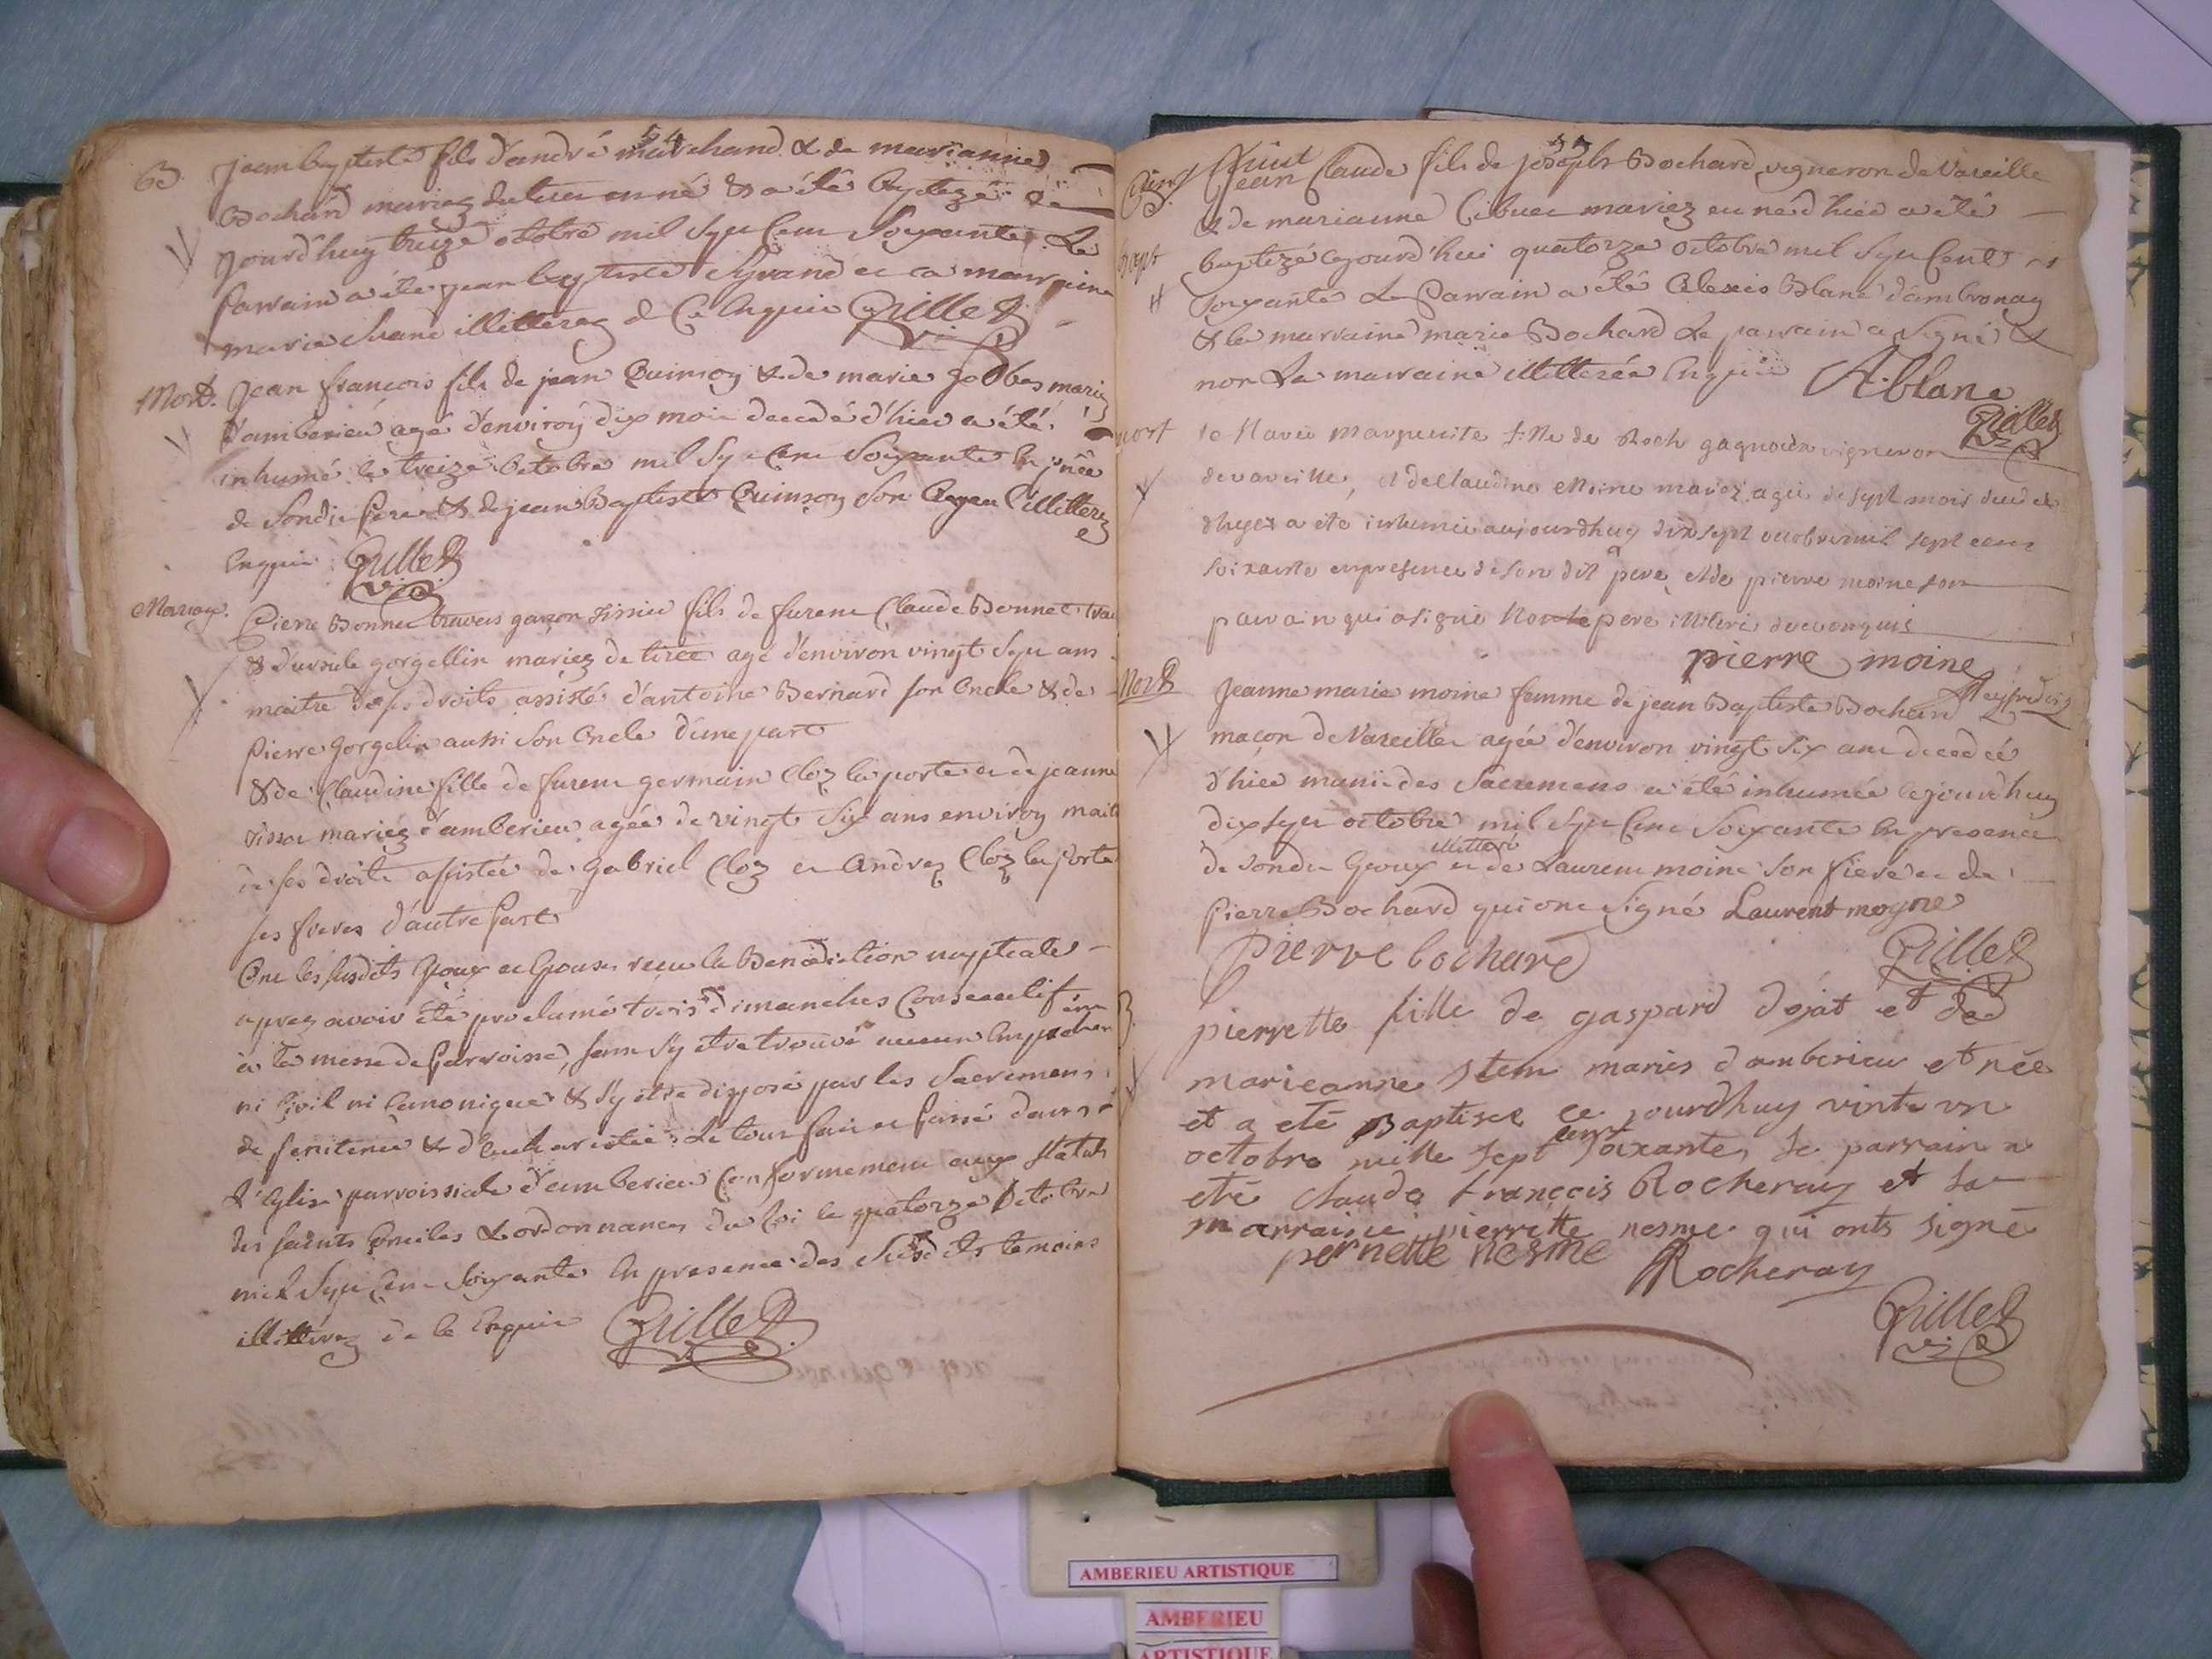 B. Jean baptiste fils d'andré marchand & de marianne
Bochard mariez du lieu en né & a été baptizé ce
jourd'huy treize octobre mil sept cent soixante. Le
parrain a été jean baptiste et la marraine
marie illitterez de ce enquis Grillet
Mort. Jean françois fils de jean Quinson & de marie mariez
d'amberieu agé d'environ dix mois decedé d'hier a été
inhumé le treize octobre mil sept cent soixante en pñce
de son dit pere & de jean Baptiste Quinson son illitterez
enquis Grillet
Mariage. Pierre Bonnet travers garçon fils de furent Claude Bonnet
& d'ursule gorgellin mariez de agé d'environ vingt sept ans
maitre de ses droits assisté d'antoine Bernard son oncle & de
Pierre Gorgelin aussi son oncle d'une part
& de Claudine fille de furent germain Cloz la porte et de jeanne
mariez d'amberieu agée de vingt six ans environ
de ses droits assistée de Gabriel Cloz et Andrez Cloz la porte
ses freres d'autre part
Ont les susdits epoux et epouse reçu la Benediction nuptiale
aprez avoir été proclamé trois dimanches consecutif
à la messe de parroisse, sans s'y etre trouvé aucun
ni civil ni canonique & s'y etre disposé par les sacremens
de penitence & d'eucharistie. Le tout fait et passé dans
l'eglise parroissiale d'amberieu conformement aux statuts
des saints conciles & ordonnances du roi le quatorze octobre
mil sept cent soixante en presence des susdits temoins
illitterez de ce enquis Grillet
Jean Claude fils de joseph Bochard vigneron de Vareille
& de marianne mariez en né d'hier a été
bapt baptizé cejourd'hui quatorze octobre mil sept cent
soixante Le Parrain a été Alexis Blanc d'ambronay
& la marraine marie Bochard Le parrain a signé &
non La marraine illitterée enquis A. blanc
Grillet
mort Marguerite fille de Roch gagneux vigneron
de vareille, et de Claudine Moine mariez agée de sept mois decedé
d'hyer a été inhumée aujourdhuy dix sept octobre mil sept cent
soixante en presence de son dit pere et de pierre moine son
parrain qui a signé Non le pere illitere de ce enquis
pierre moine
Mort Jeanne marie moine femme de jean Baptiste Bochard
maçon de Vareille agée d'environ vingt six ans decedée
d'hier munie des Sacremens a été inhumée cejourd'huy
dix sept octobre mil sept cent soixante en presence
illitteré
de son dit epoux et de Laurent moine son frere et de
Pierre Bochard qui ont signé Laurent moyne
pierre bochard Grillet
B. pierrette fille de gaspard dojat et de
marieanne mariés d'amberieu est née
et a eté Baptisee ce jourdhuy vinte un
cent
octobre mille sept soixante, le parrain a
eté claude françois Rocheray et la
marraine pierrette nesme qui onts signé
pernette nesme Rocheray
Grillet
AMBERIEU ARTISTIQUE
AMBERIEU
ARTISTIQUE